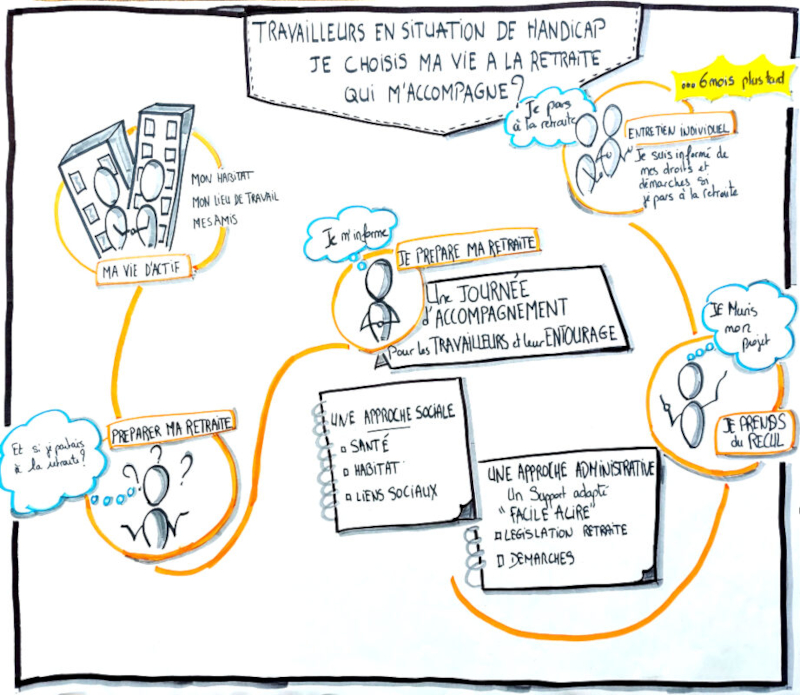 TRAVAILLEURS EN SITUATION DE HANDICAP
JE CHOISIS MA VIE A LA RETRAITE
QUI M'ACCOMPAGNE?
MON HABITAT
MON LIEU DE TRAVAIL
MES AMIS
MA VIE D'ACTIF
Et si je partais
à la retraite?
PREPARER MA RETRAITE
? ? ?
Je m'informe
JE PREPARE MA RETRAITE
Une JOURNÉE
d'ACCOMPAGNEMENT
Pour les TRAVAILLEURS et leur ENTOURAGE
UNE APPROCHE SOCIALE
SANTÉ
HABITAT
LIENS SOCIAUX
UNE APPROCHE ADMINISTRATIVE
Un Support adapté
"FACILE A LIRE"
LEGISLATION RETRAITE
DEMARCHES
JE Muris
mon
projet
JE PRENDS
du RECUL
... 6 mois plus tard
Je pars
à la retraite
ENTRETIEN INDIVIDUEL
Je suis informé de
mes droits et
démarches si
je pars à la retraite